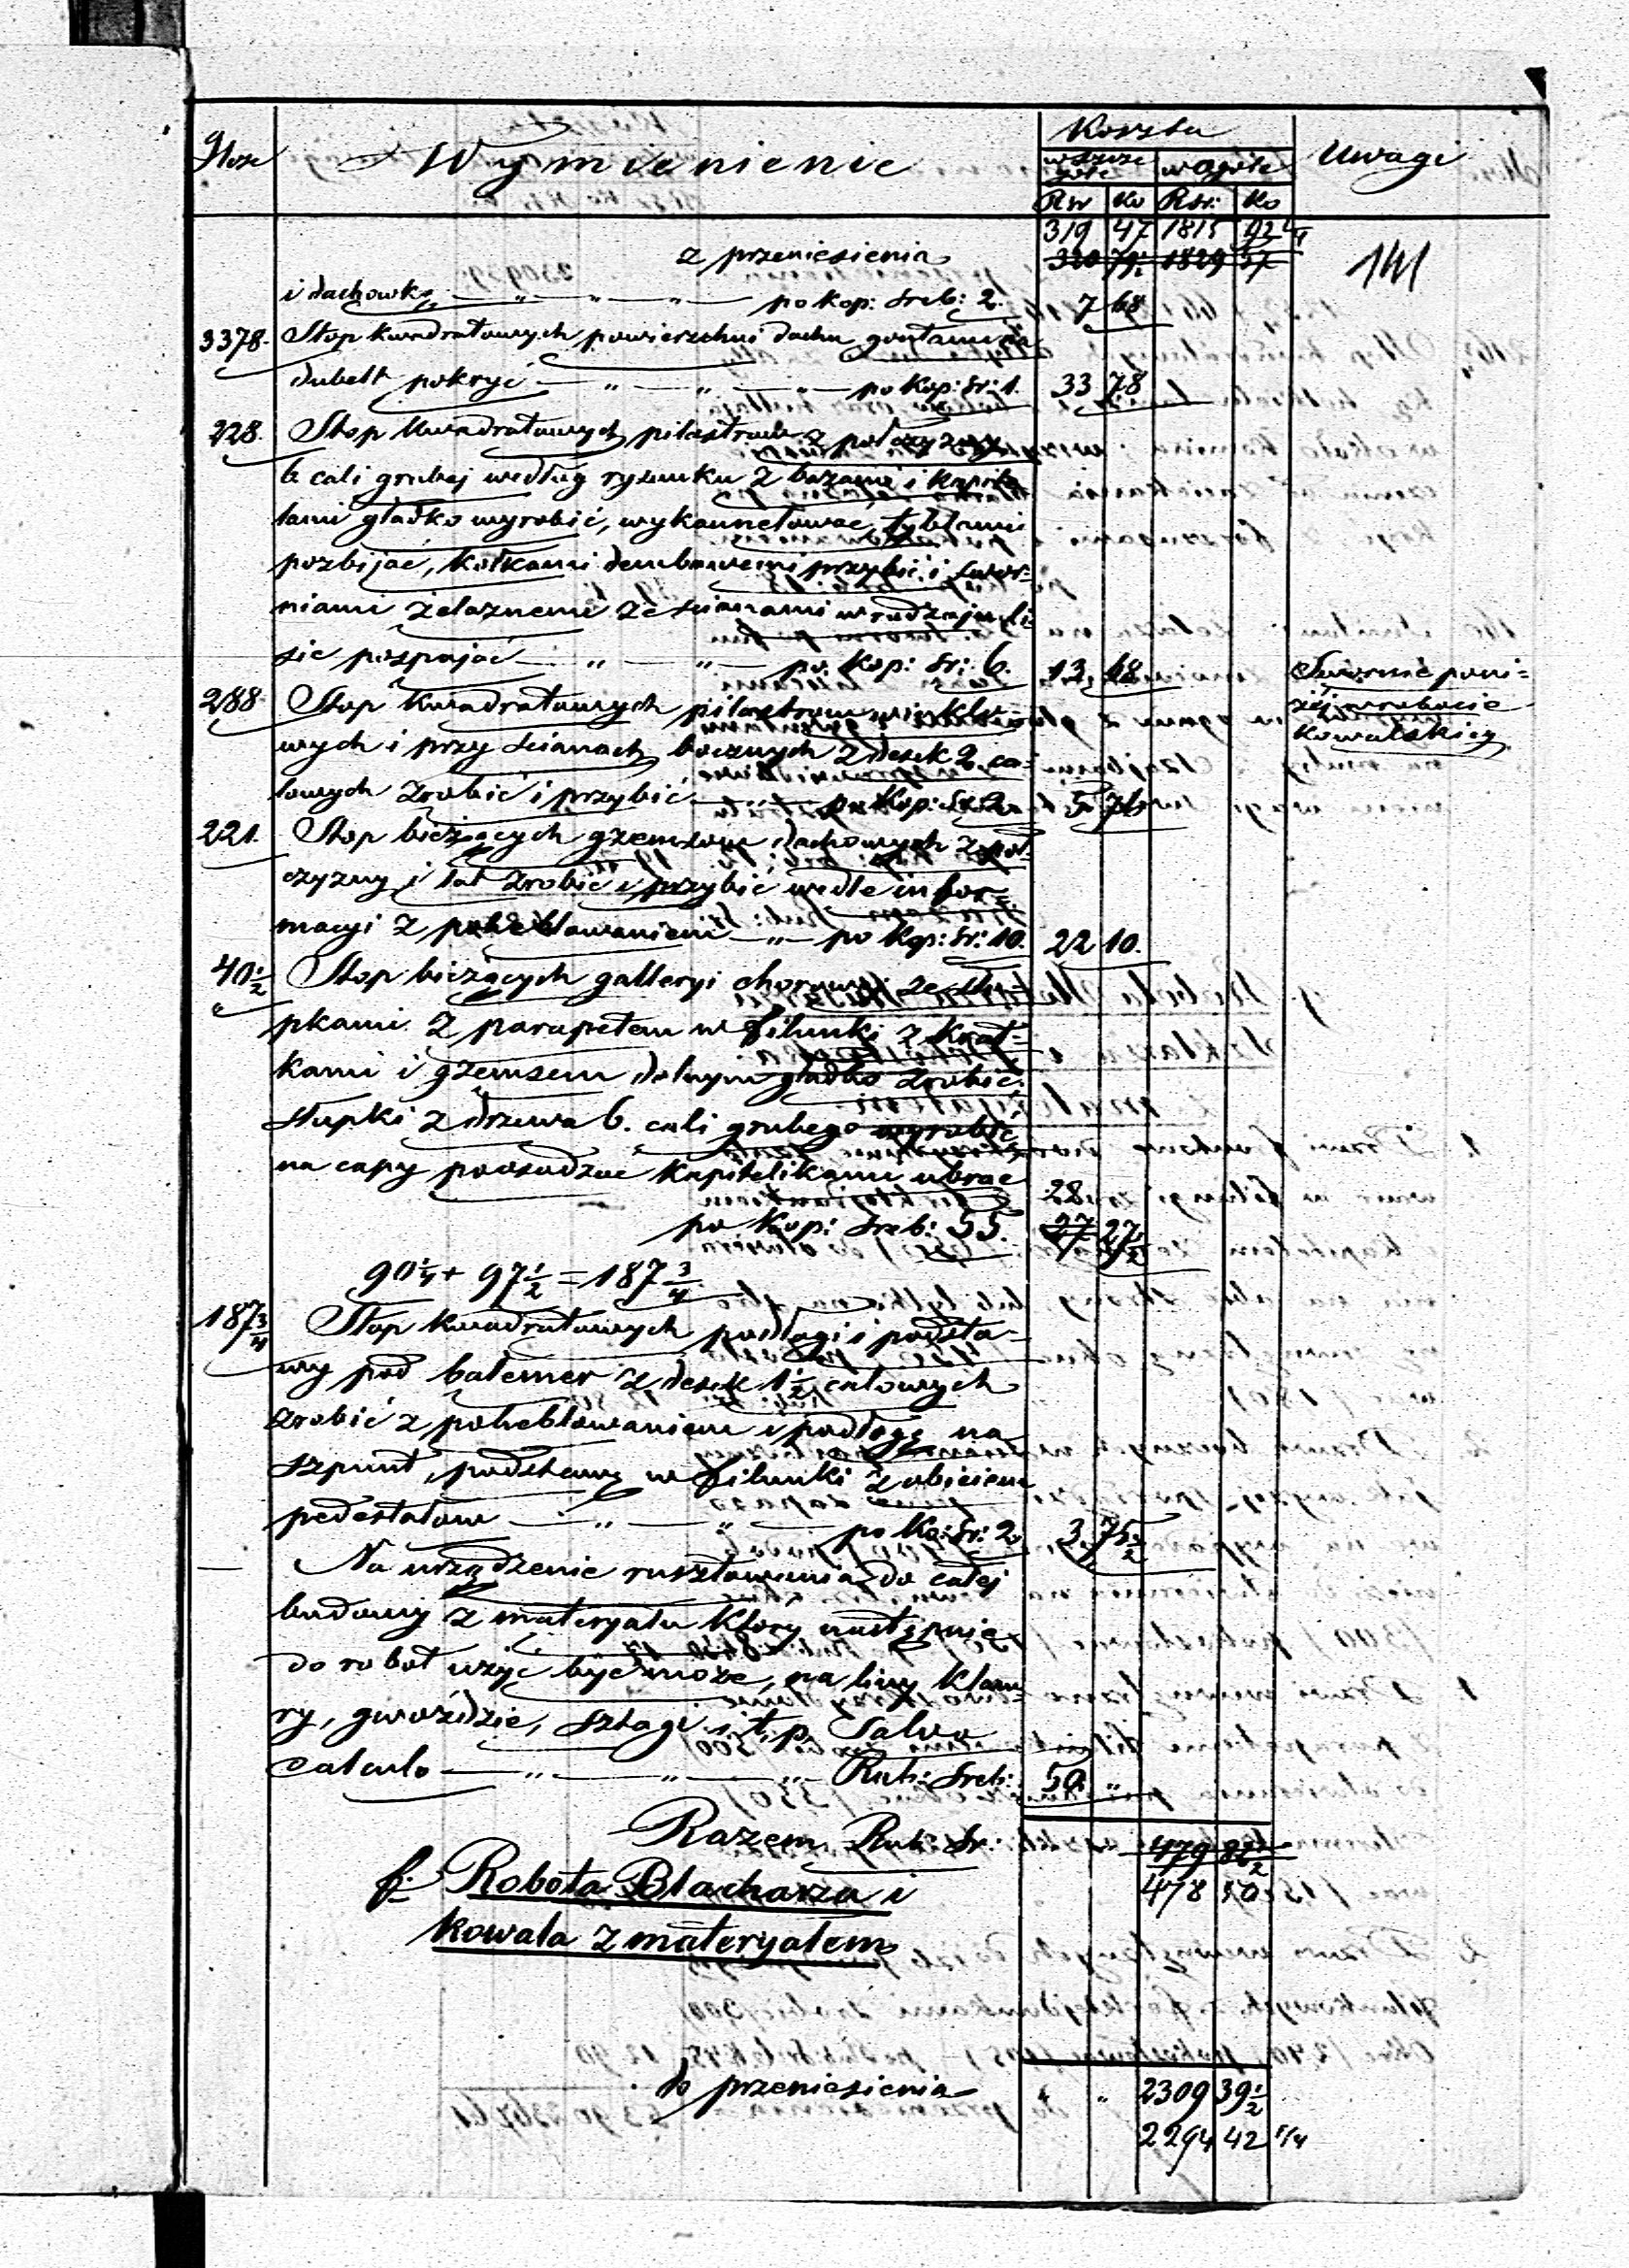 Ilość Wymienienie Koszta Uwagi
w szcze
góle w ogóle
Rsr Ko Rsr: Ko
319 47 1815 92 1/4
z przeniesienia 320 79½ 1829 57 141
i dachówką — „ — „ — „ — po kop: sreb: 2. 7 68
3378. Stop kwadratowych powierzchni dachu gontami na
dubelt pokryć — „ — „ — „ — po kop: sr: 1. 33 78
228. Stop kwadratowych pilastrow z połczyzny
6 cali grubej według rysunku z bazami i kapite
lami gładko wyrobić, wykannelować, tyblami
pozbijać, kołkami dembowemi przybić i swor=
niami żelaznemi ze scianami w rodzaju li
sic pospajać — „ — „ — po kop: sr: 6. 13 68 Swornie poni=
288. Stop kwadratowych pilastrow żej w robocie
wych i przy scianach bocznych z desek 2. ca= kowalskiey
lowych zrobić i przybić — „ — po kop: sr: 2 5 76
221. Stop bieżących gzemsow dachowych z poł
czyzny i łat zrobić i przybić wedle infor=
macyi z poheblowaniem — „ — po kop: sr: 10. 22 10.
40½ Stop bieżących galleryi chorowej ze słu=
pkami z parapetem w filunki z krat=
kami i gzemsem dolnym gładko zrobić.
słupki z drzewa 6. cali grubego wyrobić
na capy poosadzać kapitelikami ubrać 28
po kop: sreb: 55. 27 27½
90¼ + 97½ = 187¾
187¾ Stop kwadratowych podłogi i podsta=
wy pod balemer z desek 1½ calowych
zrobić z poheblowaniem i podłogę na
szpunt, podstawę w filunki z obiciem
pedestałow — „ — „ — po ko: sr: 2 3 75½
— Na urządzenie rusztowania do całej
budowy z materyału który następnie
do robot użyć być może, na liny klam
ry, gwoździe, sztagi i t. p. Salvo
calculo — „ — „ — „ — Rub: Sreb: 50. „
Razem Rub: Sr: 479 82½
f. Robota Blacharza i 478 50
kowala z materyałem
do przeniesienia „ „ 2309 39½
2294 42 1/4